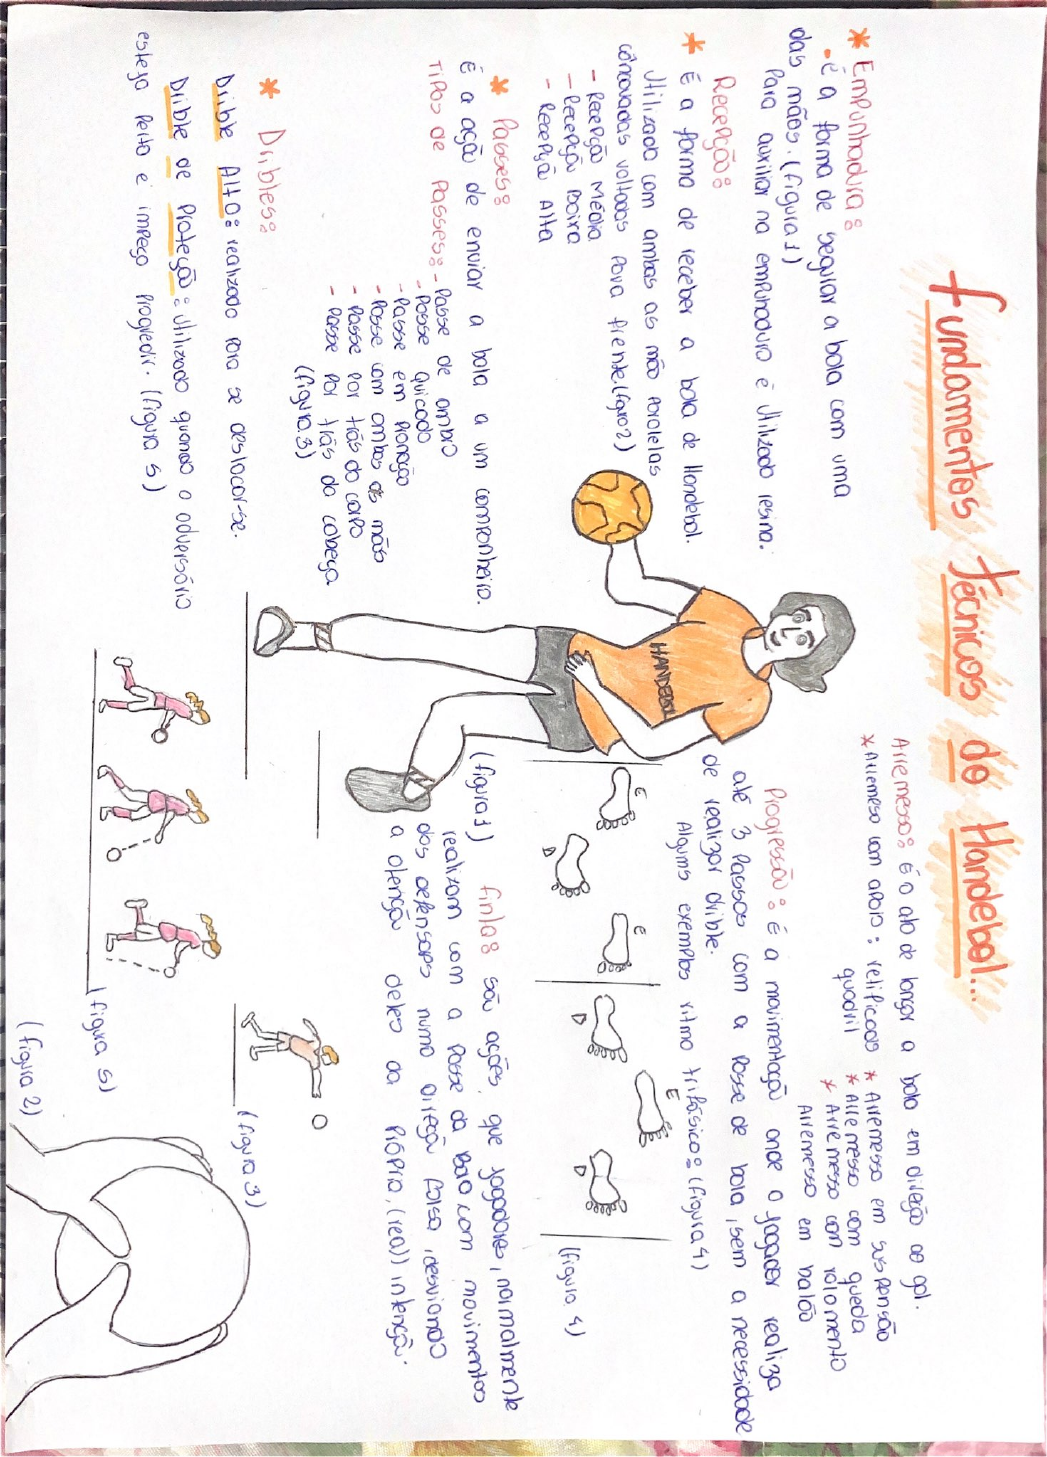 Fundamentos técnicos do Handebol...
* Empunhadura:
- é a forma de segurar a bola com uma
das mãos. (figura 1)
Para auxiliar na empunhadura é utilizado resina.
Recepção:
* É a forma de receber a bola de Handebol.
Utilizado com ambas as mão paralelas
côncavadas voltadas para frente (figura 2)
- Recepção Média
- Recepção Baixa
- Recepção Alta
* Passes:
É a ação de enviar a bola a um companheiro.
Tipos de Passes: - Passe de ombro
- Passe quicado
- Passe em pronação
- Passe com ambas as mãos
- Passe por trás do corpo
- Passe por trás da cabeça
(figura 3)
* Dribles:
Drible Alto: realizado para se deslocar-se.
Drible de Proteção: utilizado quando o adversário
esteja perto e impeça progredir. (figura 5)
Arremesso: É o ato de lançar a bola em direção ao gol.
* Arremeso com apoio: retificado quadril
* Arremesso em suspensão
* Arremesso com queda
* Arremesso com rolamento
Arremesso em balão
Progressão: É a movimentação onde o jogador realiza
até 3 passos com a posse de bola, sem a necessidade
de realizar drible.
Alguns exemplos ritmo trifásico: (figura 4)
HANDEBOL
E
D
E
D
E
D
(figura 4)
(figura 1)
finta: são ações, que jogadores, normalmente
realizam com a posse da bola com movimentos
dos defensores numa direção falsa, desviando
a atenção deles da própria, (real) intenção.
(figura 3)
(figura 5)
(figura 2)